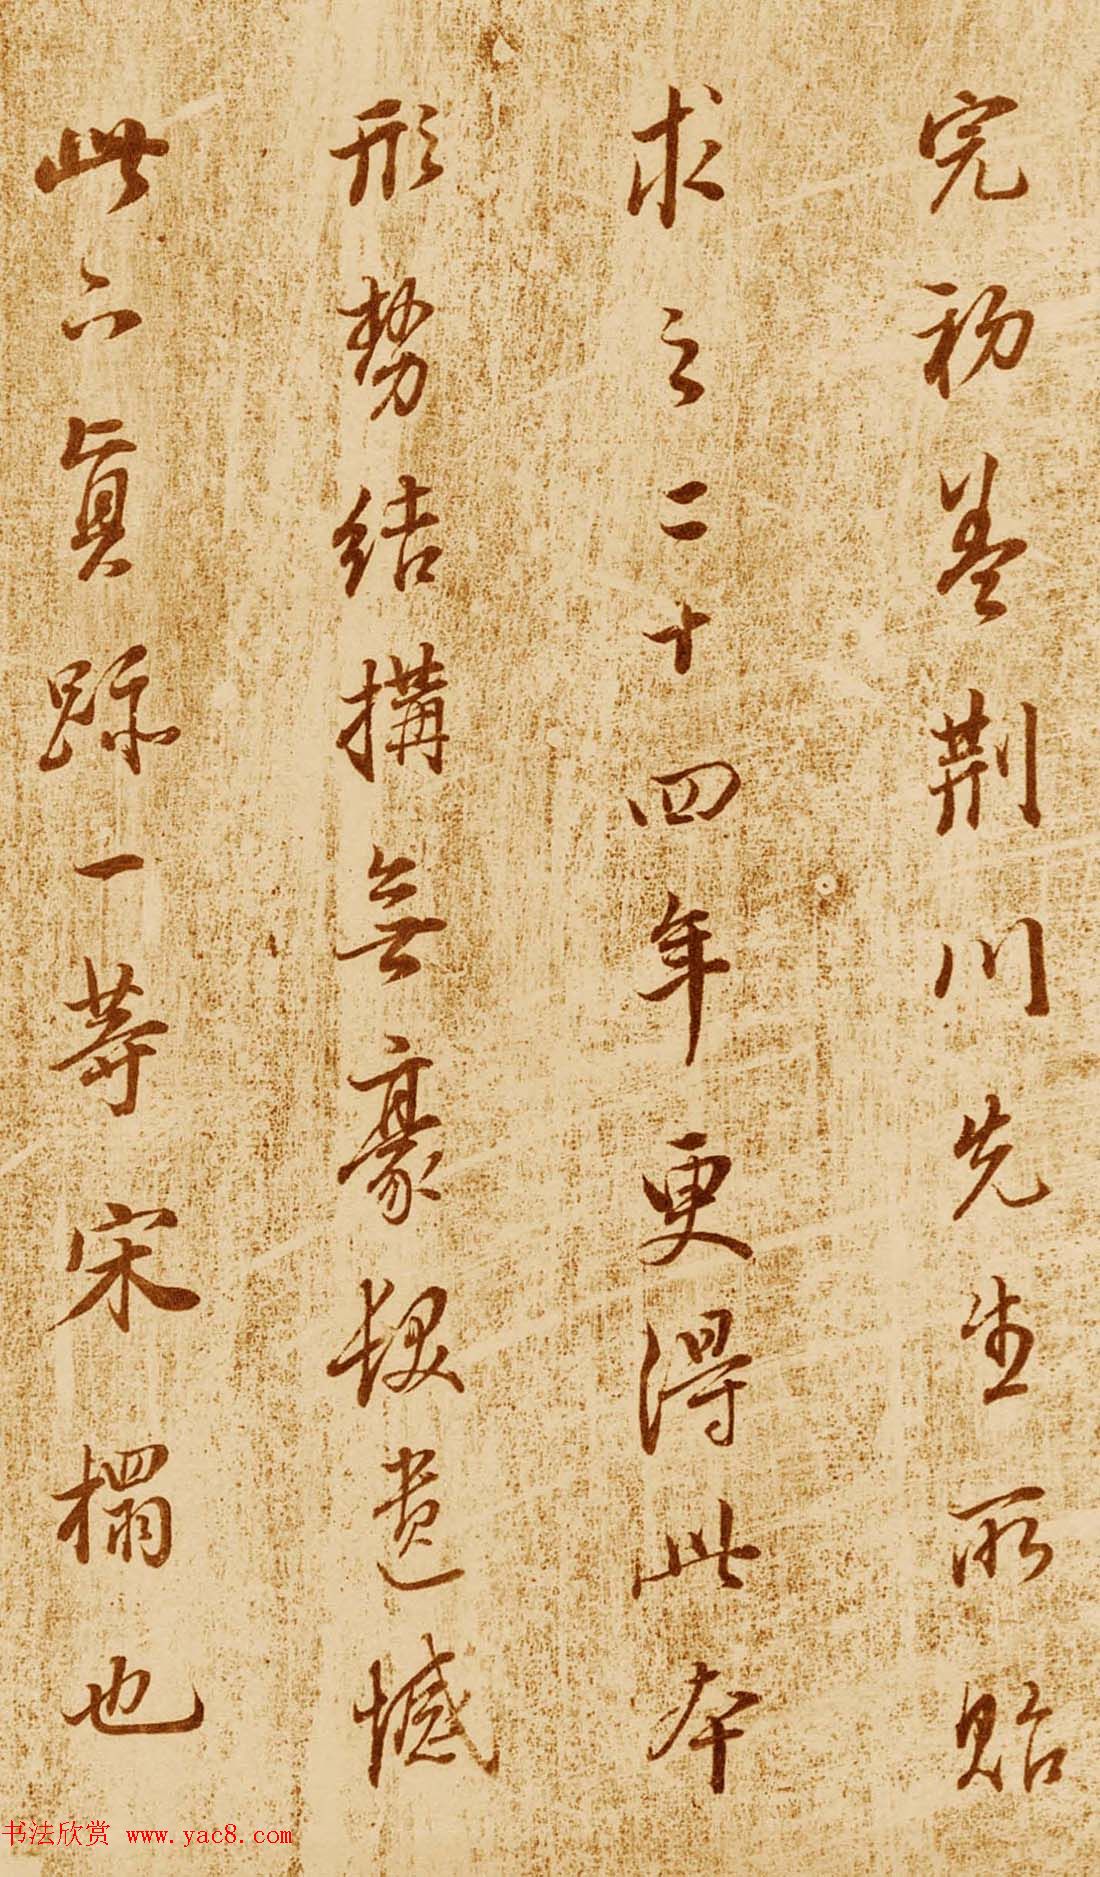 完初卷荆川先生所貽
求之二十四年更得此本
形勢結構無豪髮遺憾
此下真跡一等宋榻也
书法欣赏 www.yac8.com